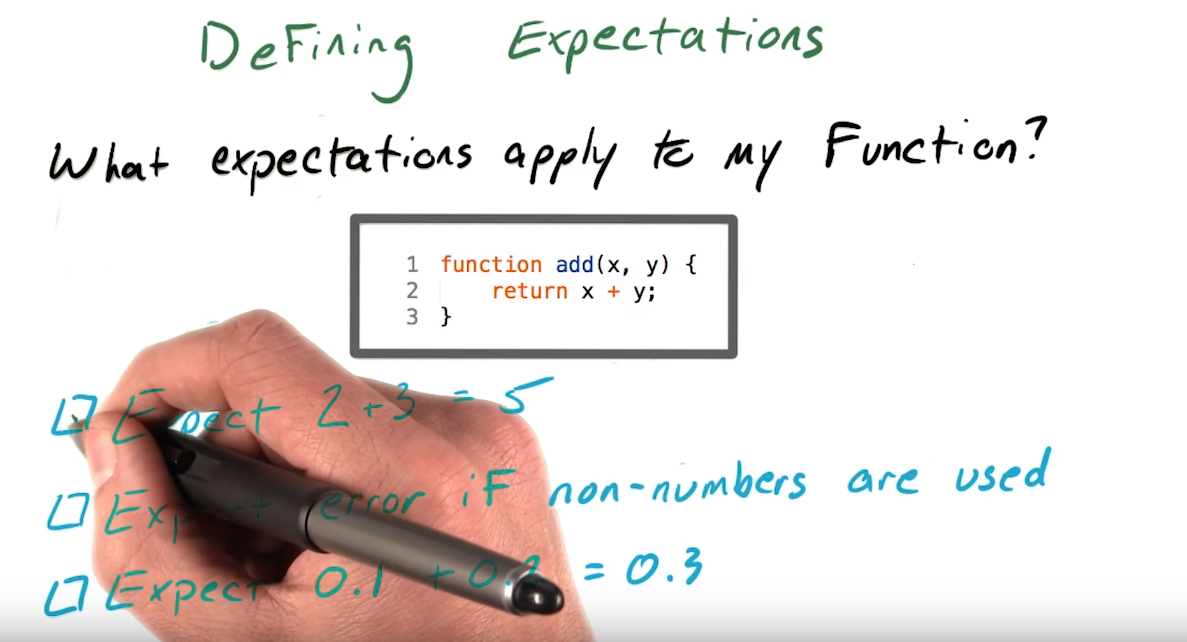 Defining Expectations
What expectations apply to my Function?
1 function add(x, y) {
2 return x + y;
3 }
Expect 2 + 3 = 5
Expect error if non-numbers are used
Expect 0.1 + 0.2 = 0.3